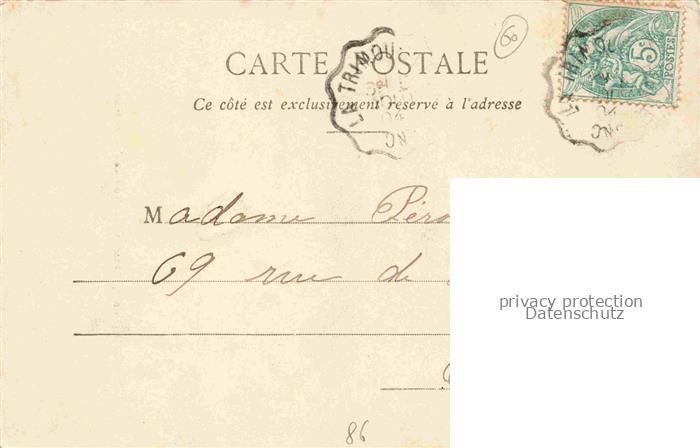 CARTE POSTALE
Ce côté est exclusivement réservé à l'adresse
LA TRIMOU
04
5c
POSTES
Madame
69 rue de
privacy protection
Datenschutz
86